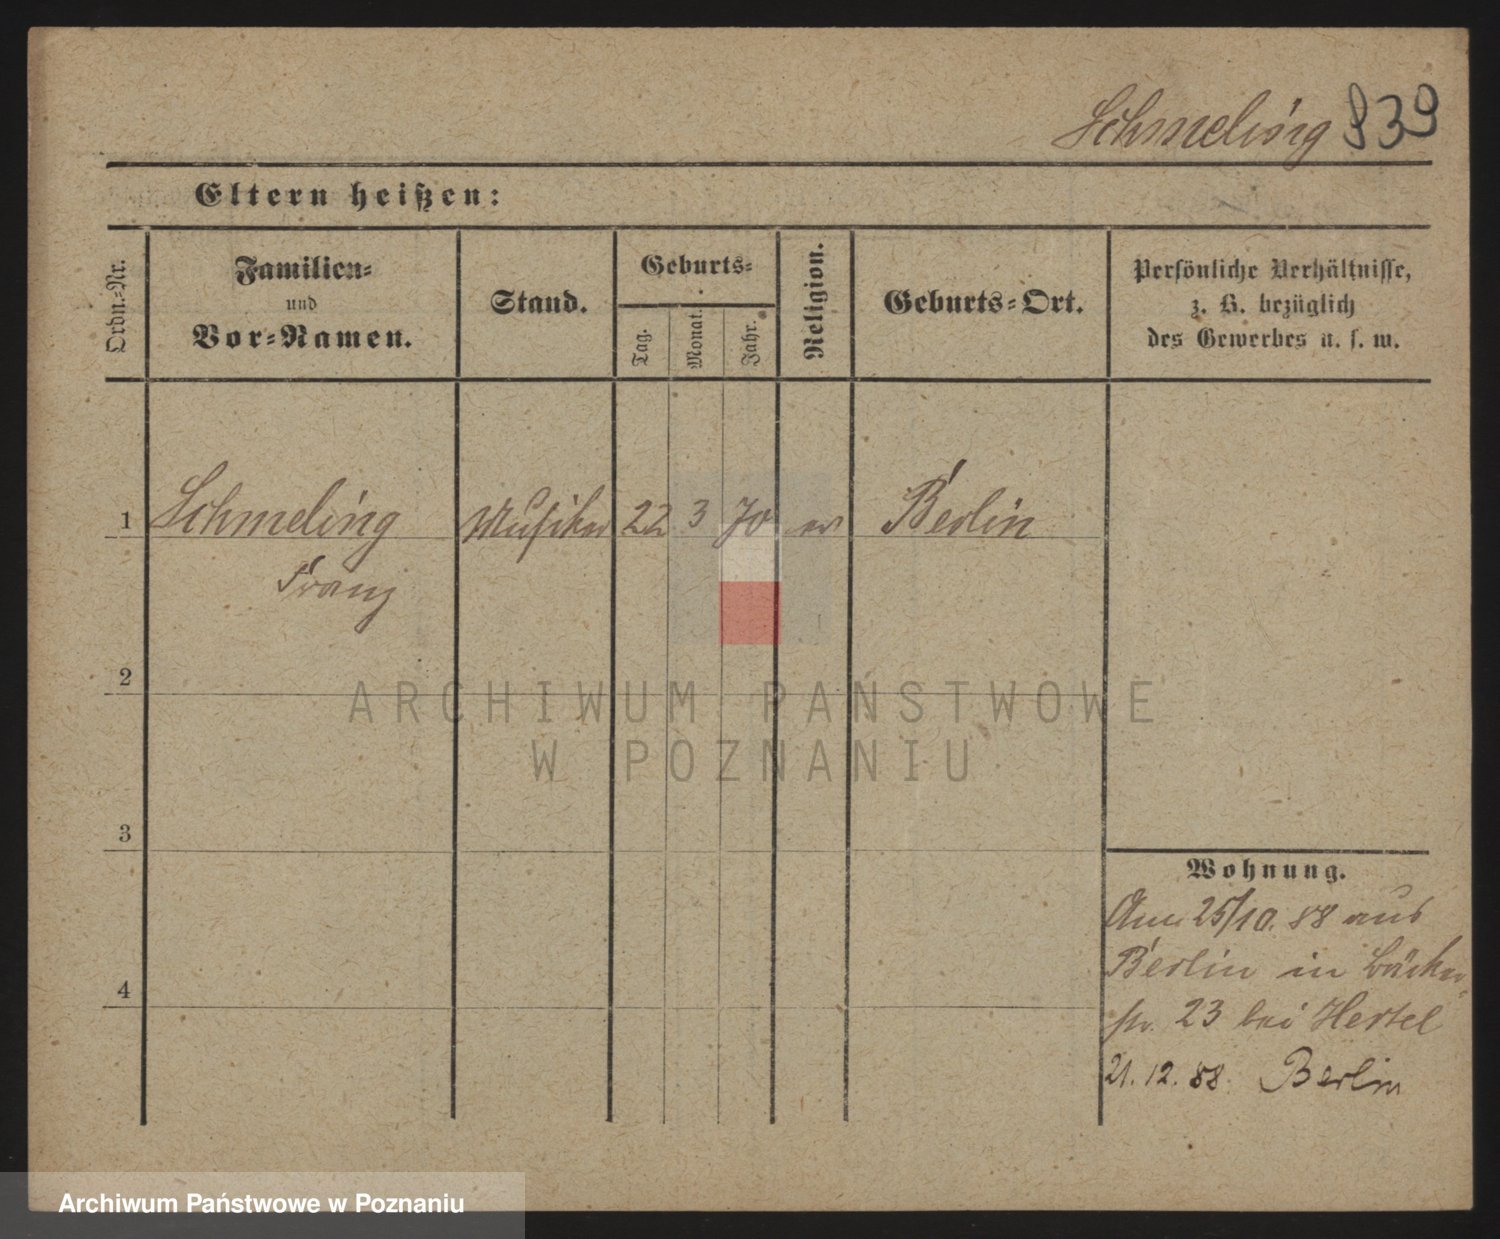 Schmeling 839
Eltern heißen:
Ordn.-Nr.
Familien-
und
Vor-Namen.
Stand.
Geburts-
Tag.
Monat.
Jahr.
Religion.
Geburts-Ort.
Persönliche Verhältnisse,
z. B. bezüglich
des Gewerbes u. s. w.
1 Schmeling Musiker 22 3 70 ev Berlin
Franz
2
ARCHIWUM PAŃSTWOWE
W POZNANIU
3
Wohnung.
Am 25/10. 88 aus
Berlin in Bäcker-
str. 23 bei Hertel
4
21. 12. 88. Berlin
Archiwum Państwowe w Poznaniu